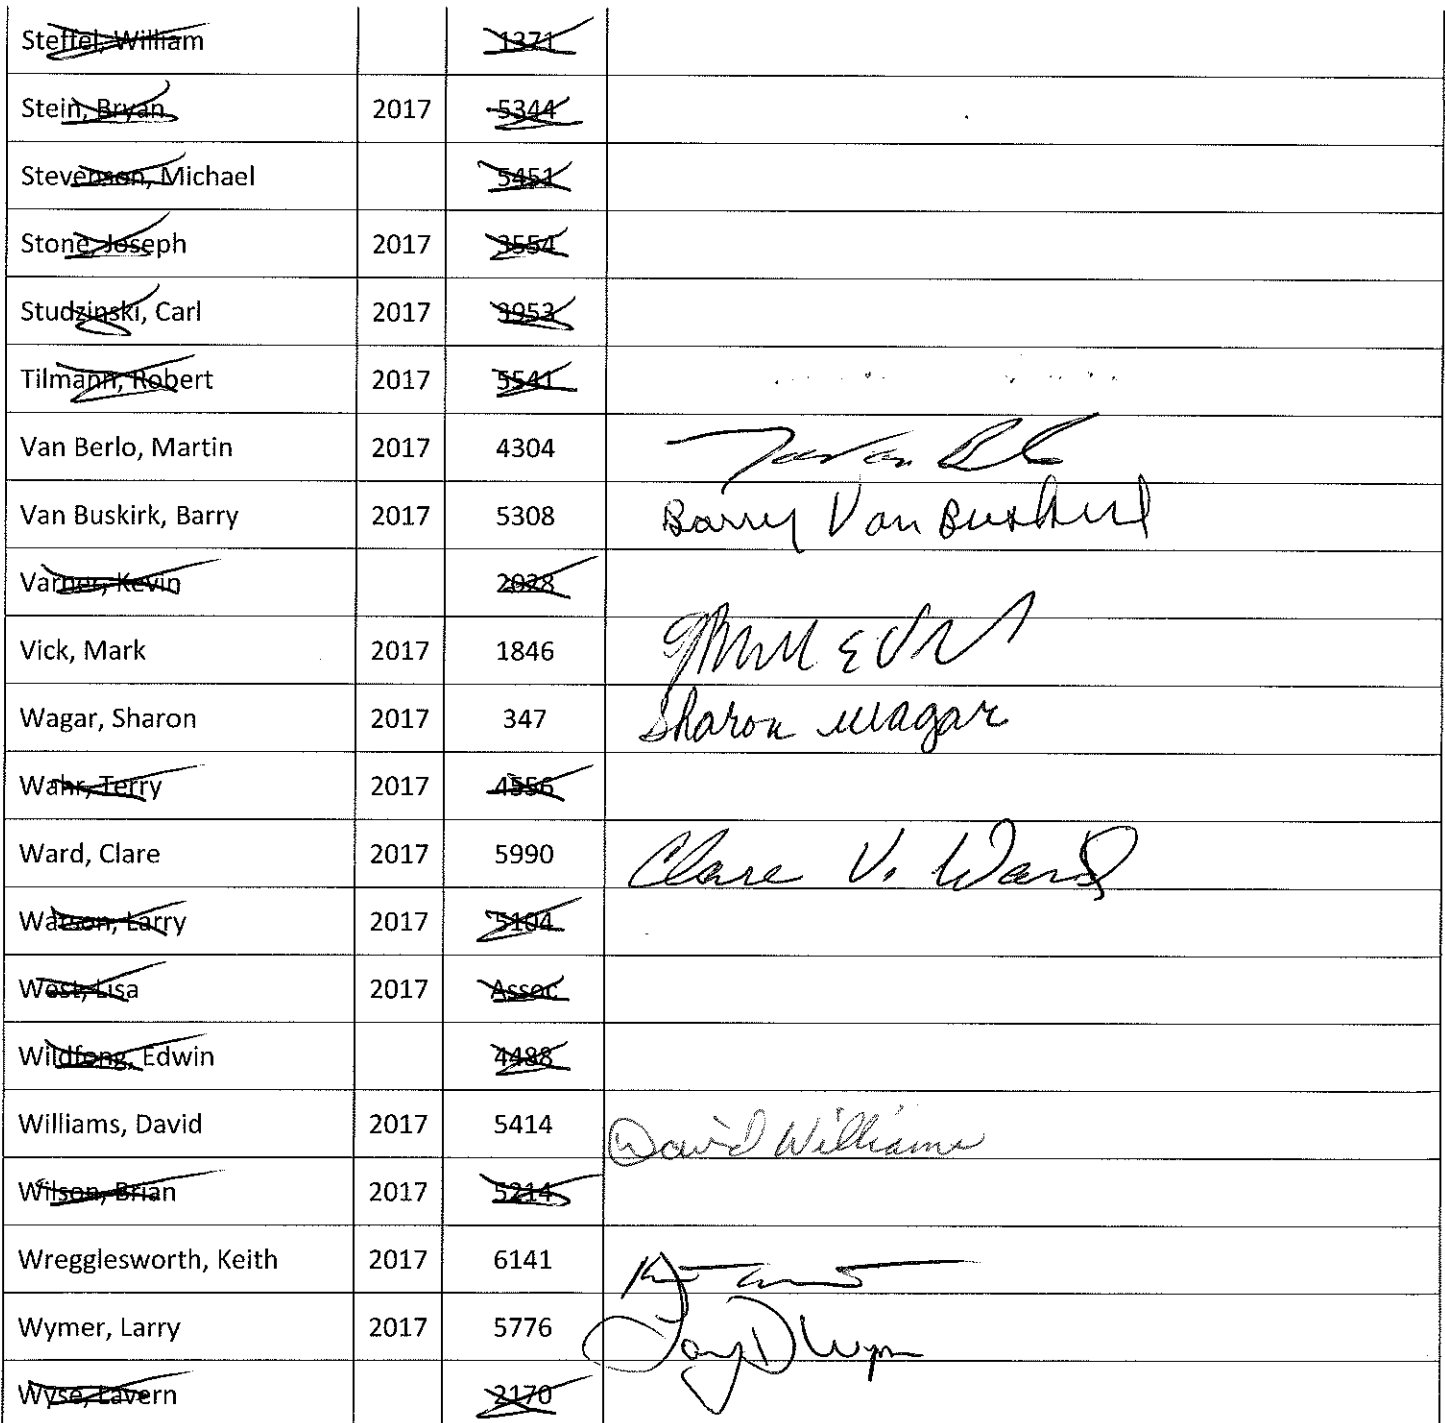 Steffel, William 1371
Stein, Bryan 2017 5344
Stevenson, Michael 5451
Stone, Joseph 2017 3554
Studzinski, Carl 2017 3953
Tilmann, Robert 2017 5541
Van Berlo, Martin 2017 4304
Van Buskirk, Barry 2017 5308 Barry Van Buskirk
Varner, Kevin 2028
Vick, Mark 2017 1846
Wagar, Sharon 2017 347 Sharon Wagar
Wahr, Terry 2017 4556
Ward, Clare 2017 5990 Clare V. Ward
Watson, Larry 2017 5104
West, Lisa 2017 Assoc
Wildfong, Edwin 4488
Williams, David 2017 5414 David Williams
Wilson, Brian 2017 5214
Wregglesworth, Keith 2017 6141
Wymer, Larry 2017 5776
Wyse, Lavern 2170